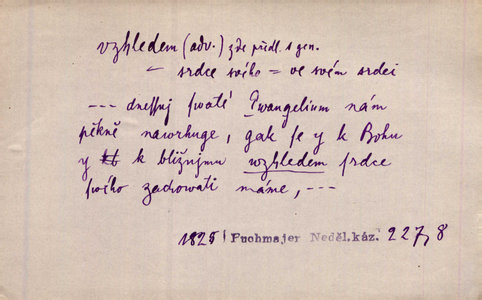 vzhledem (adv.) zde předl. s gen.
~ srdce svého = ve svém srdci
--- dneſſnj ſwaté Ewangelium nám
pěkně nawrhuge, gak ſe y k Bohu
y k bližnjmu wzhledem ſrdce
ſwého zachowati máme, ---
1825 Puchmajer Neděl.káz. 227,8